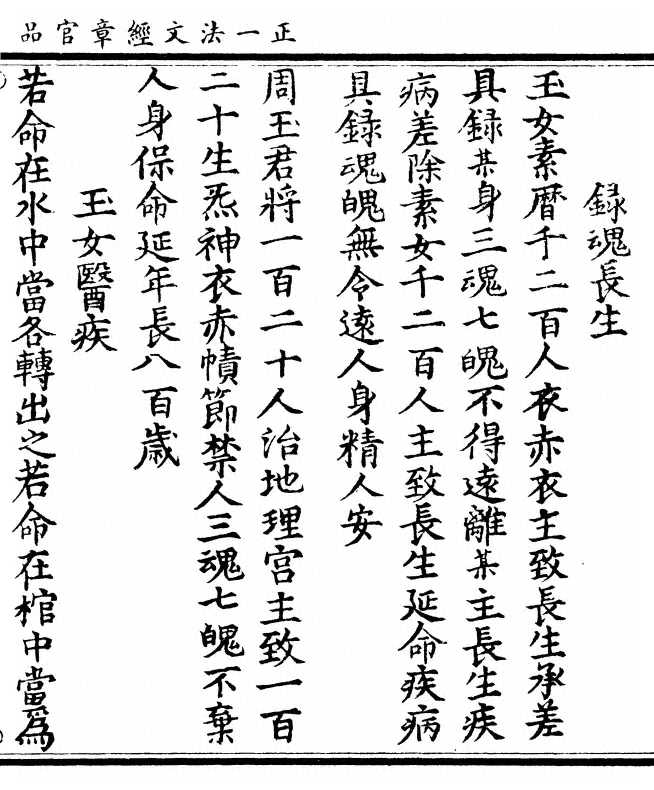 正一法文經章官品
錄魂長生
玉女素曆千二百人衣赤衣主致長生承差
具錄某身三魂七魄不得遠離某主長生疾
病差除素女千二百人主致長生延命疾病
具錄魂魄無令遠人身精人安
周玉君將一百二十人治地理宮主致一百
二十生炁神衣赤幘節禁人三魂七魄不棄
人身保命延年長八百歲
玉女醫疾
若命在水中當各轉出之若命在棺中當爲